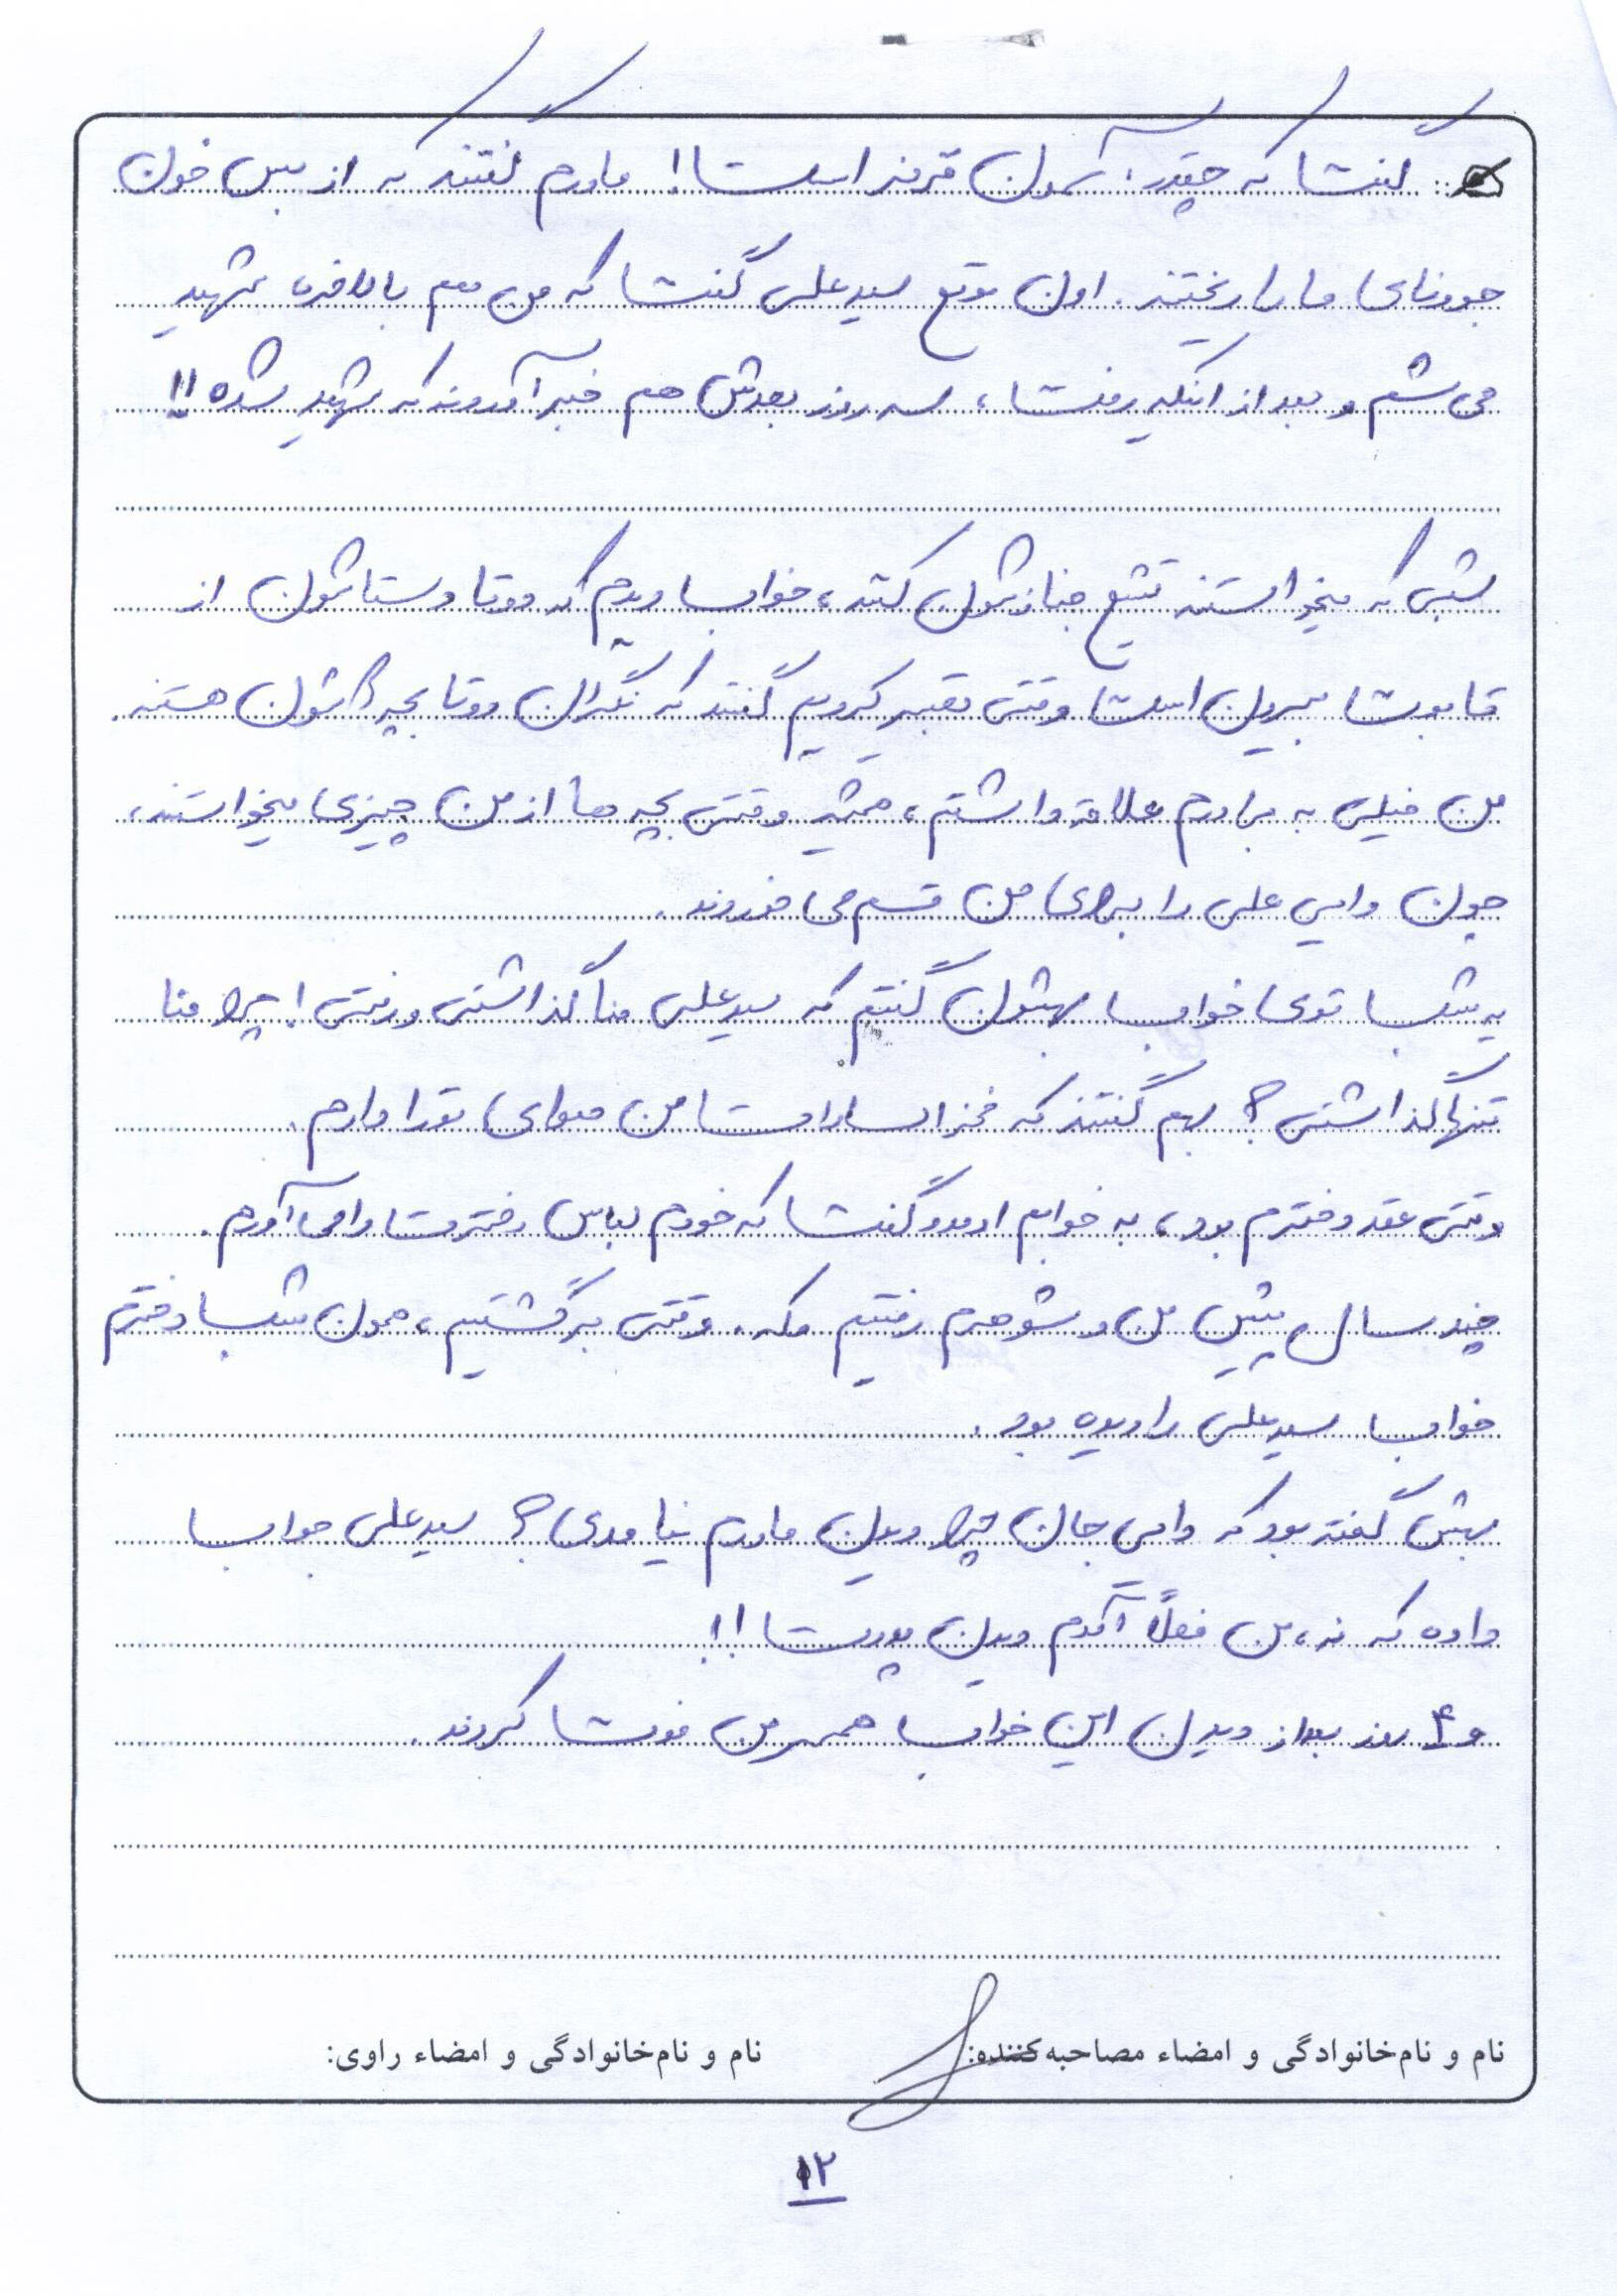 گفت که چقدر آسمون قرمز است! مادرم گفتند که از بس خون
جوونای ما را ریختند. اون موقع سیدعلی گفت که من هم بالاخره شهید
می شم و بعد از اینکه رفت، سه روز بعدش هم خبر آوردند که شهید شده!!
شبی که میخواستند تشیع جنازشون کنند، خواب دیدم که دوتا دستاشون از
تابوت بیرون است وقتی تعبیر کردیم گفتند که نگران دوتا بچه هاشون هستند.
من خیلی به برادرم علاقه داشتم، همیشه وقتی بچه ها از من چیزی میخواستند،
جون دایی علی را برای من قسم می خوردند.
یه شب توی خواب بهشون گفتم که سیدعلی منا گذاشتی و رفتی! چرا منا
تنها گذاشتی؟ بهم گفتند که فخرالسادات من هوای تو را دارم.
وقتی عقد دخترم بود، به خوابم اومد و گفت که خودم لباس دخترت را می آورم.
چند سال پیش من و شوهرم رفتیم مکه. وقتی برگشتیم، همون شب دخترم
خواب سیدعلی را دیده بود.
بهش گفته بود که دایی جان چرا دیدن مادرم نیامدی؟ سیدعلی جواب
داده که نه، من فعلاً آمدم دیدن پدرت!!
و ۴ روز بعد از دیدن این خواب همسر من فوت کردند.
نام و نام‌خانوادگی و امضاء مصاحبه‌کننده: نام و نام‌خانوادگی و امضاء راوی:
۱۲